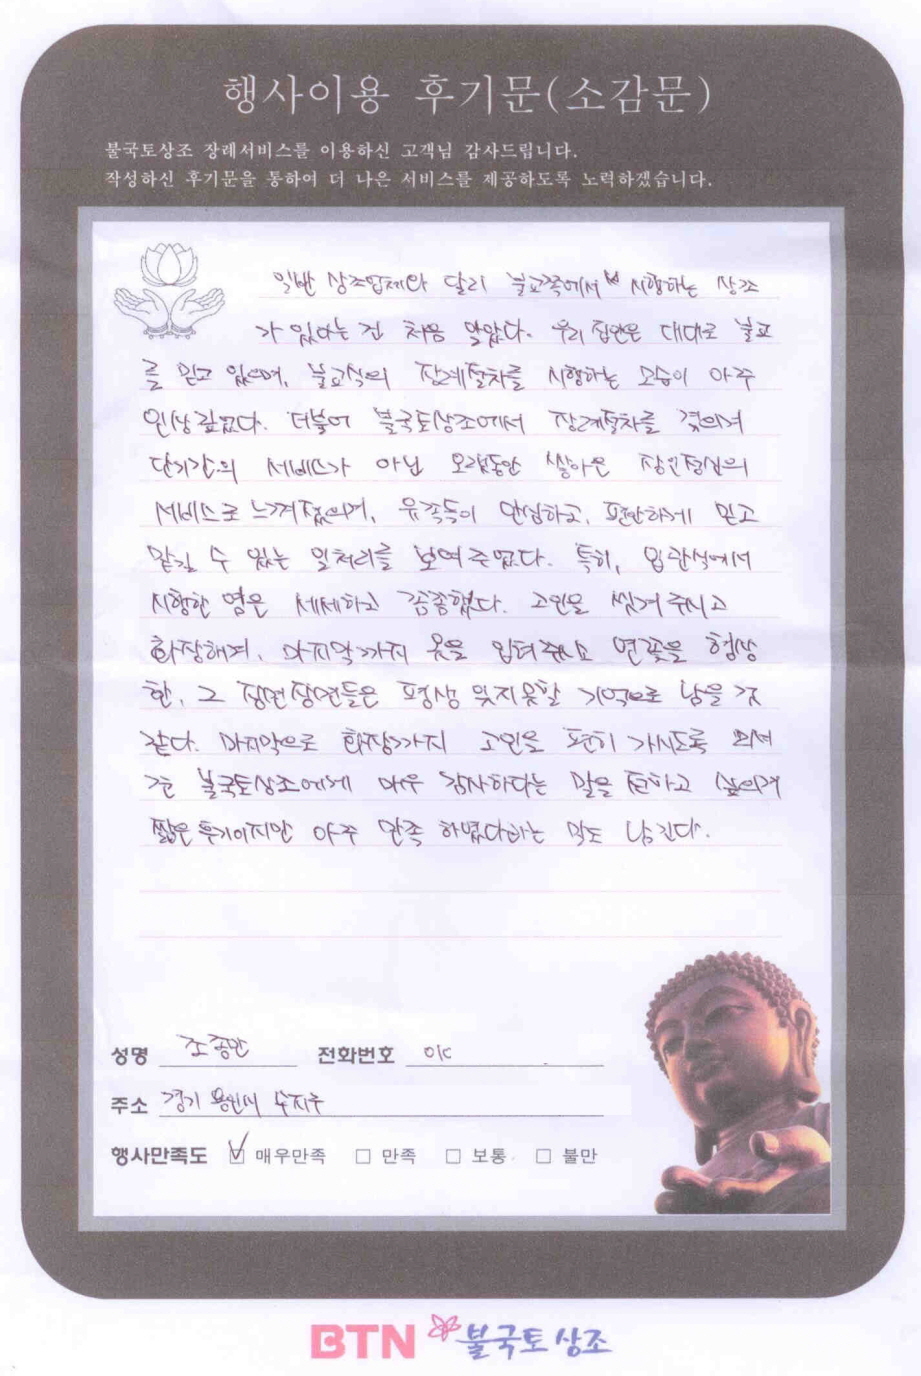 행사이용 후기문(소감문)
불국토상조 장례서비스를 이용하신 고객님 감사드립니다.
작성하신 후기문을 통하여 더 나은 서비스를 제공하도록 노력하겠습니다.
일반 상조업체와 달리 불교쪽에서 시행하는 상조
가 있다는 건 처음 알았다. 우리 집안은 대대로 불교
를 믿고 있으며, 불교식의 장례절차를 시행하는 모습이 아주
인상깊었다. 더불어 불국토상조에서 장례절차를 겪으며
단기간의 서비스가 아닌 오랫동안 쌓아온 장인정신의
서비스로 느껴졌으며, 유족들이 안심하고, 편안하게 믿고
맡길 수 있는 일처리를 보여주었다. 특히, 입관식에서
시행한 염은 세세하고 꼼꼼했다. 고인을 씻겨주시고
화장해며, 마지막까지 옷을 입혀주시고 연꽃을 형상
한, 그 장면장면들은 평생 잊지못할 기억으로 남을 것
같다. 마지막으로 화장까지 고인을 편히 가시도록 모셔
준 불국토상조에게 매우 감사하다는 말을 전하고 싶으며
짧은 후기이지만 아주 만족 하였다라는 말도 남긴다.
성명 조종만 전화번호 010
주소 경기 용인시 수지구
행사만족도 ☑ 매우만족 □ 만족 □ 보통 □ 불만
BTN 불국토상조